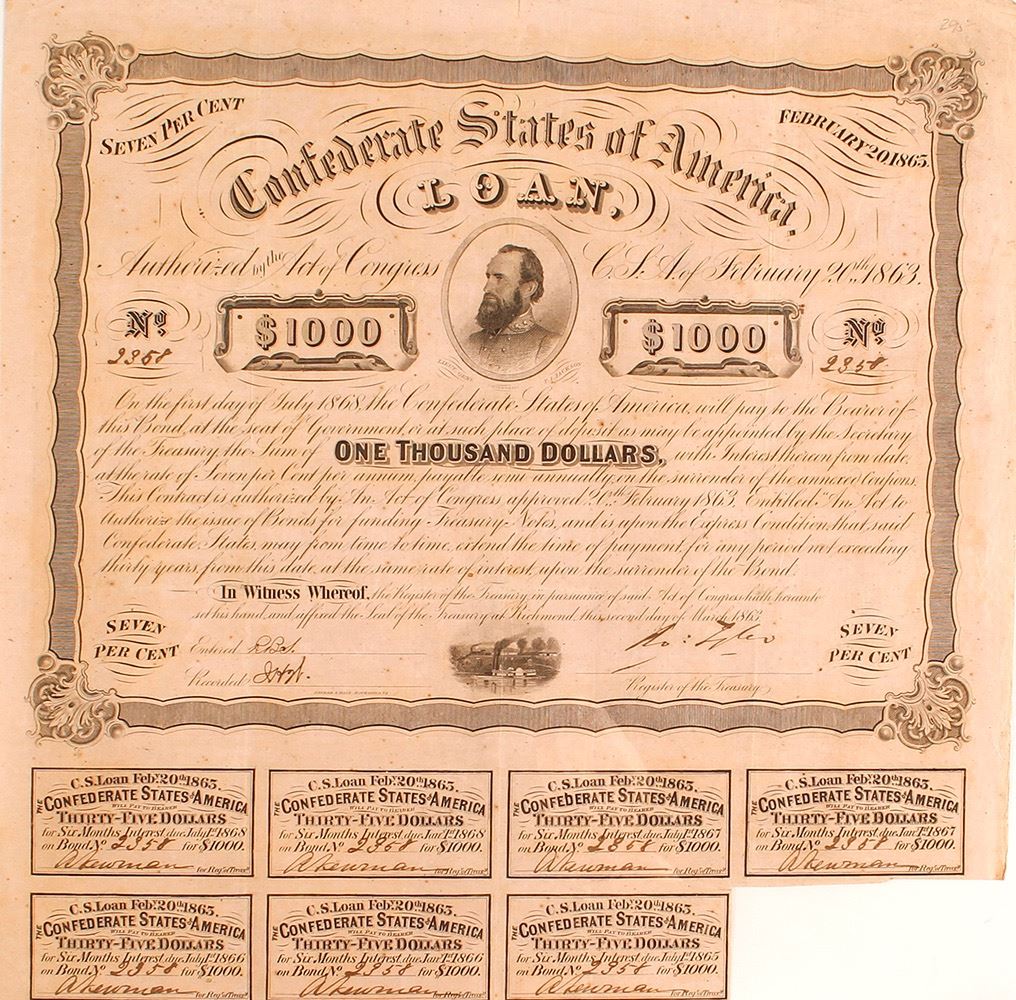 295
SEVEN PER CENT
FEBRUARY 20 1863.
Confederate States of America.
LOAN,
Authorized by the Act of Congress C.S.A. of February 20th 1863.
No $1000 $1000 No
2358 2358
LIEUT. GENL T.J. JACKSON
On the first day of July 1868, the Confederate States of America, will pay to the Bearer of
this Bond, at the seat of Government, or at such place of deposit as may be appointed by the Secretary
of the Treasury, the Sum of ONE THOUSAND DOLLARS, with Interest thereon from date,
at the rate of Seven per Cent per annum, payable semi-annually, on the surrender of the annexed Coupons.
This Contract is authorized by An Act of Congress approved 20th February 1863, Entitled "An Act to
Authorize the issue of Bonds for funding Treasury Notes, and is upon the Express Condition, that said
Confederate States, may from time to time, extend the time of payment, for any period not exceeding
thirty years, from this date, at the same rate of interest, upon the surrender of the Bond.
In Witness Whereof, the Register of the Treasury, in pursuance of said Act of Congress, hath, hereunto
set his hand, and affixed the Seal of the Treasury, at Richmond, this second day of March 1863.
SEVEN PER CENT
Entered
Recorded
Ro: Tyler
Register of the Treasury
SEVEN PER CENT
C.S. Loan Feby. 20th 1863.
THE CONFEDERATE STATES OF AMERICA
WILL PAY TO BEARER
THIRTY-FIVE DOLLARS
for Six Months Interest due July 1st 1868
on Bond No 2358 for $1000.
A Newman for Reg. of Treasy.
C.S. Loan Feby. 20th 1863.
THE CONFEDERATE STATES OF AMERICA
WILL PAY TO BEARER
THIRTY-FIVE DOLLARS
for Six Months Interest due Jany 1st 1868
on Bond No 2358 for $1000.
A Newman for Reg. of Treasy.
C.S. Loan Feby. 20th 1863.
THE CONFEDERATE STATES OF AMERICA
WILL PAY TO BEARER
THIRTY-FIVE DOLLARS
for Six Months Interest due July 1st 1867
on Bond No 2358 for $1000.
A Newman for Reg. of Treasy.
C.S. Loan Feby. 20th 1863.
THE CONFEDERATE STATES OF AMERICA
WILL PAY TO BEARER
THIRTY-FIVE DOLLARS
for Six Months Interest due Jany 1st 1867
on Bond No 2358 for $1000.
A Newman for Reg. of Treasy.
C.S. Loan Feby. 20th 1863.
THE CONFEDERATE STATES OF AMERICA
WILL PAY TO BEARER
THIRTY-FIVE DOLLARS
for Six Months Interest due July 1st 1866
on Bond No 2358 for $1000.
A Newman for Reg. of Treasy.
C.S. Loan Feby. 20th 1863.
THE CONFEDERATE STATES OF AMERICA
WILL PAY TO BEARER
THIRTY-FIVE DOLLARS
for Six Months Interest due Jany 1st 1866
on Bond No 2358 for $1000.
A Newman for Reg. of Treasy.
C.S. Loan Feby. 20th 1863.
THE CONFEDERATE STATES OF AMERICA
WILL PAY TO BEARER
THIRTY-FIVE DOLLARS
for Six Months Interest due July 1st 1865
on Bond No 2358 for $1000.
A Newman for Reg. of Treasy.